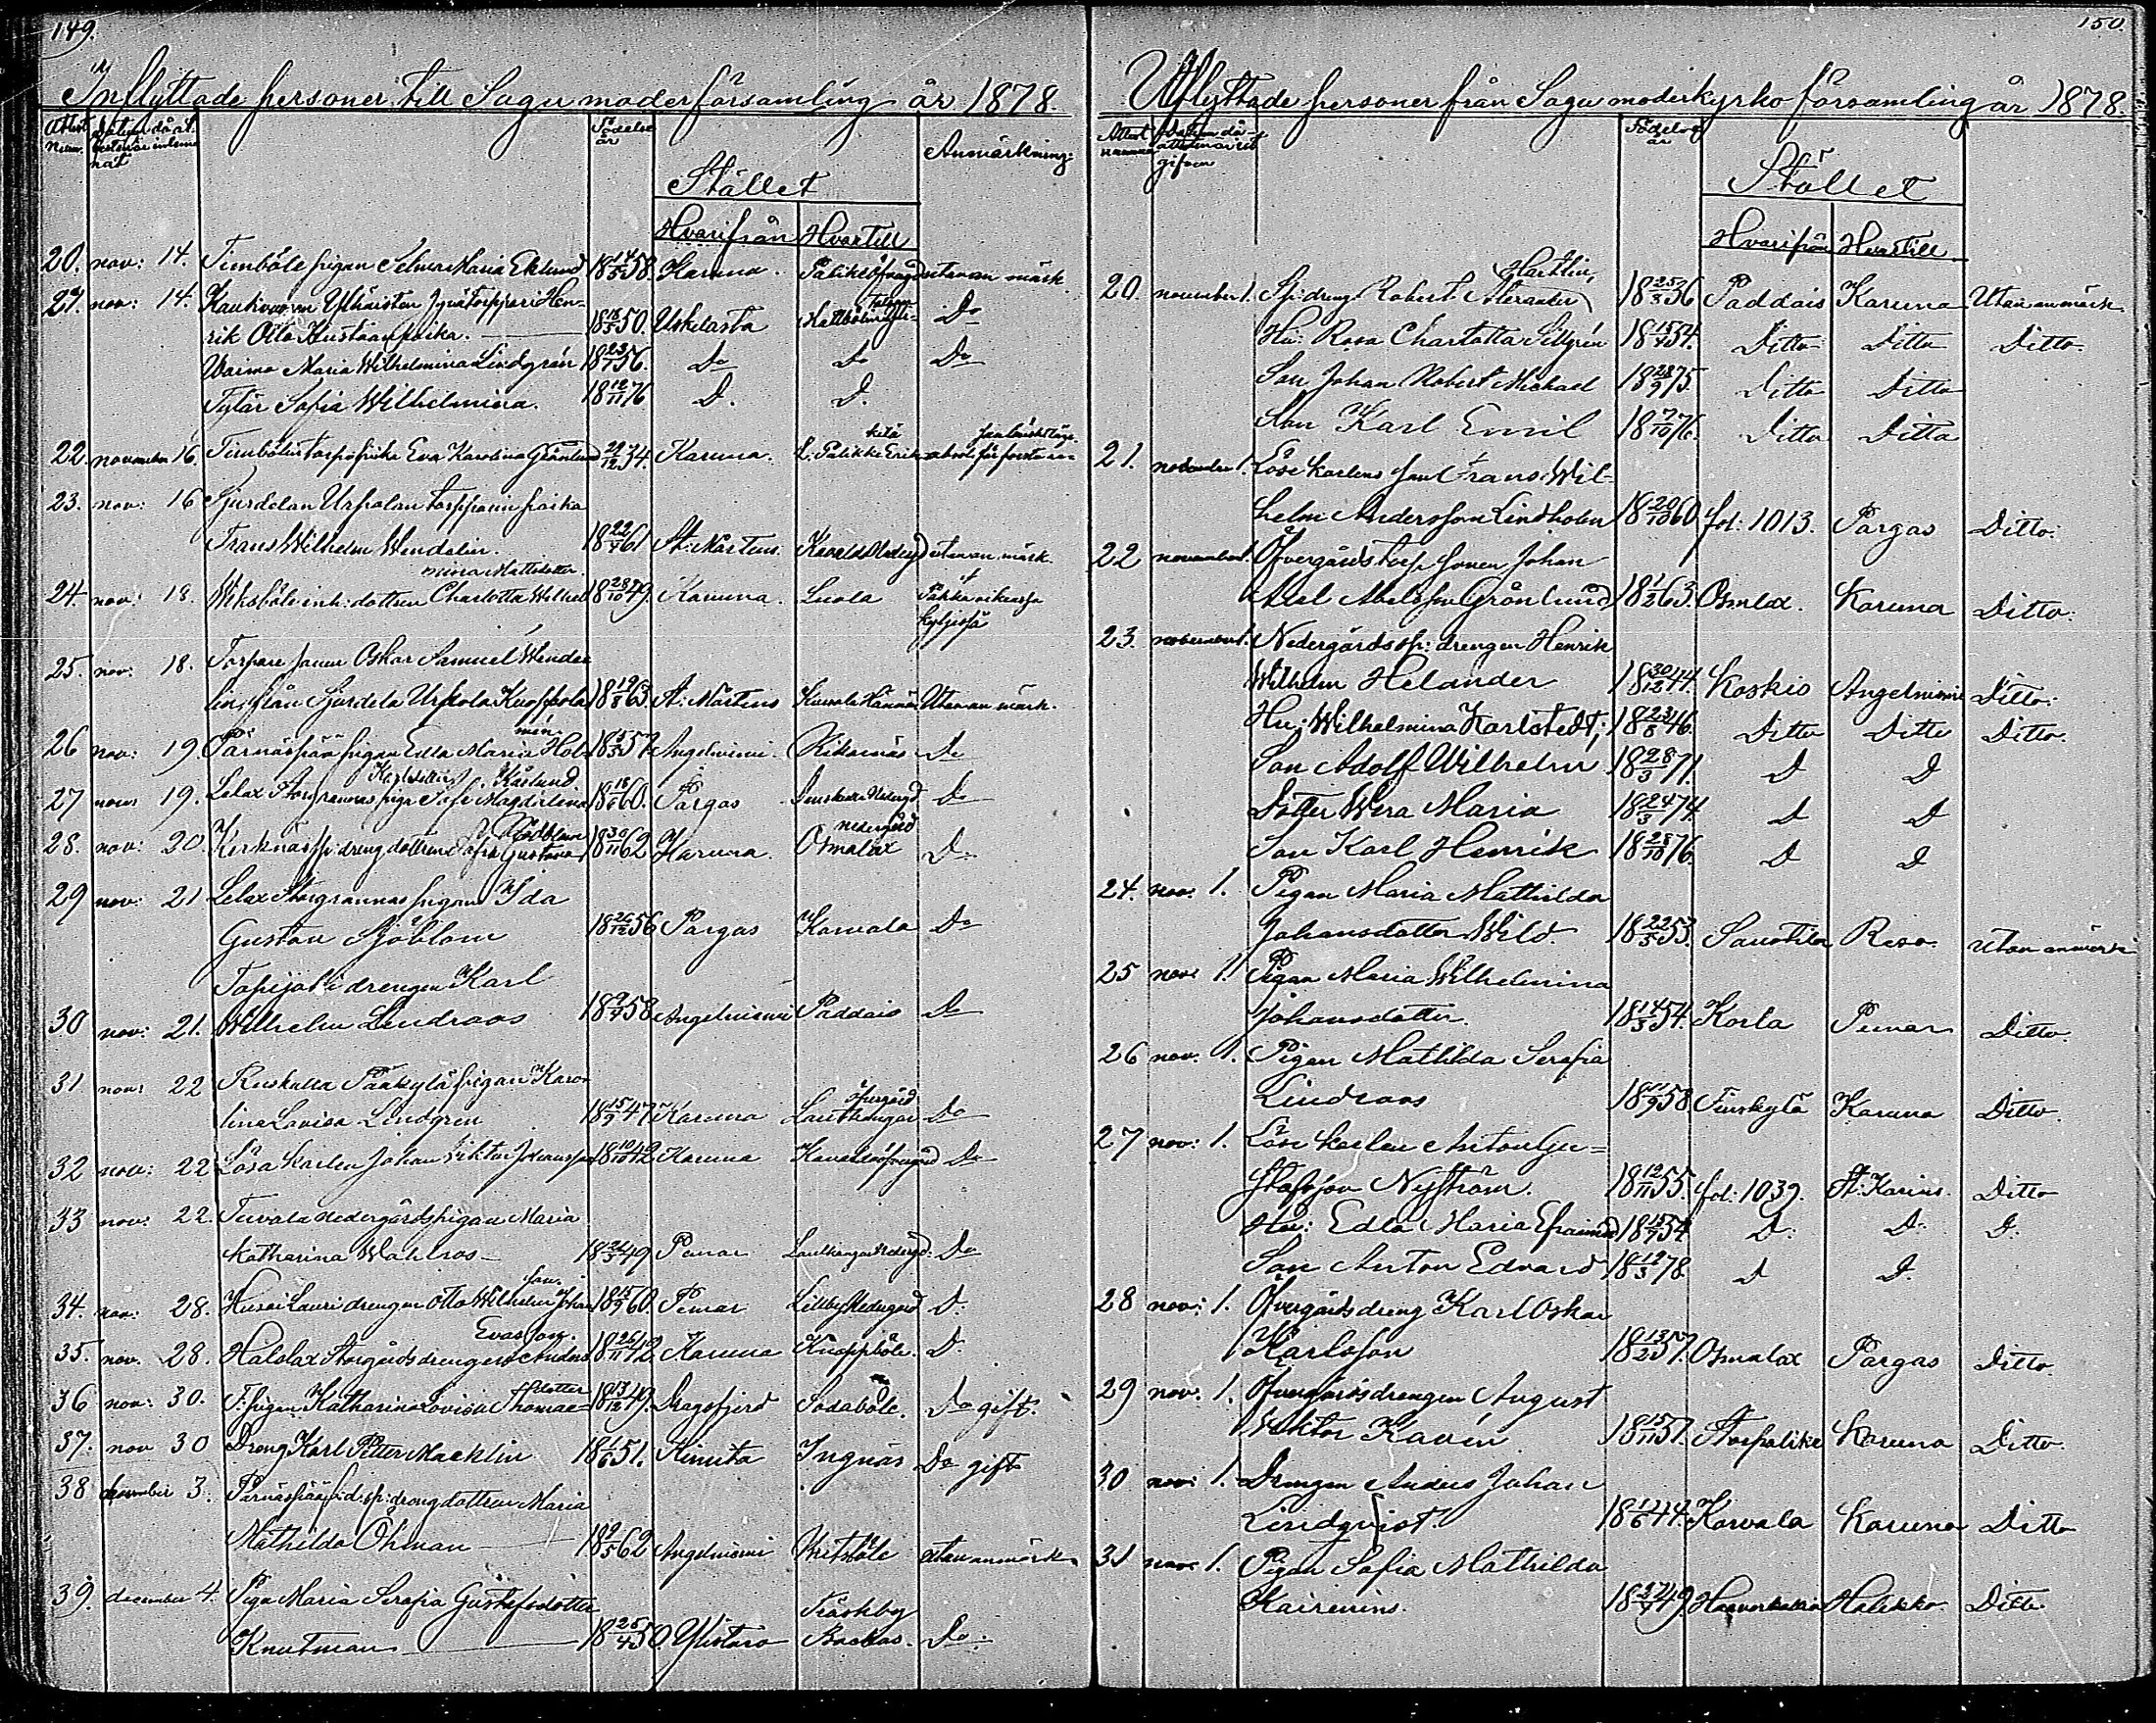 149.
Inflyttade personer till Sagu moderförsamling år 1878.
Attest Datum då at
Födelse år
Anmärkning:
Stället
Hvarifrån Hvartill
20. nov: 14. Timböle pigan Selma Maria Eklund 18 14/5 58. Karuna. utan an märk
21. nov: 14. Hen-
rik Otto Kustaanpoika. 18 18/5 50. Uskelasta Do
Waimo Maria Wilhelmina Lindgrén 18 23/7 56. Do Do Do
Tytär Sofia Wilhelmina. 18 12/11 76 D. D.
22. november 16. Eva Karolina Grönlund 18 22/12 34. Karuna.
23. nov: 16 Sjurdelan Urpolan torpparin poika
Frans Wilhelm Wendelin. 18 22/4 61 St: Mårtens. utan an märk.
mina Mattsdotter.
24. nov: 18. Wiksböle inh: dottren Charlotta Wilhel 18 28/10 49. Karuna. Luola
25. nov: 18. Torpare sonen Oskar Samuel Wende
lin från Sjurdela Urpola 18 19/8 63. St: Mårtens Utan an märk.
26 nov: 19. Pärnäspää pigan Edla Maria Hol- 18 5/5 57. Angelniemi Do
27 nov: 19. Lelax Storgrannas piga Sofi Magdalena 18 18/6 60. Pargas Nedergd Do
28. nov: 20. Kirknäs sp: dreng dottren Sofia Gustava 18 30/11 62 Karuna. Osmalax nedergård Do
29 nov: 21 Lelax Storgrannas pigan Ida
Gustava Sjöblom 18 26/12 56 Pargas Korvala Do
Tapijoki drengen Karl
30 nov: 21. Wilhelm Lindroos 18 9/7 58 Angelniemi Paddais Do
31 nov: 22 Ruskulla Pääkylä pigan Karo-
lina Lovisa Lindgren 18 15/9 47 Karuna öfvergård Do
32 nov: 22 Lösa karlen Johan Viktor Johansson 18 10/10 42 Karuna Do
33 nov: 22. Tuvala nedergårdspigan Maria
Katharina Wahlros 18 24/3 49 Pemar Do
34. nov: 28. Husai Lauri drengen Otto Wilhelm Johan 18 15/9 60. Pemar Lillby Nedergård D.
Evasson.
35. nov. 28. Hålolax Storgårds drengen Anders 18 26/11 42 Karuna Knappböle. D.
36 nov: 30. T: pigan Katharina Lovisa Thomae- 18 13/12 49. Dragsfjerd Sådaböle. Do gift.
37. nov 30 Dreng Karl Petter Macklin 18 1/6 51. Kimito Ingnäs Do gift
38 december 3. Pärnäspää sp: dreng dottren Maria
Mathilda Öhman 18 9/5 62 Angelniemi utan anmärk
39. december 4. Piga Maria Serafia Gustafsdotter
Knutman 18 25/4 50. Träskby Backas. Do.
150.
Utflyttade personer från Sagu moderkyrko församling år 1878.
Attest nummer Datum då attesten är ut gifven
Födelse år
Stället
Hvarifrån Hvartill
20. november 1. Sp: dreng Robert Alexander 18 25/3 36 Paddais Karuna Utan anmärk.
Hu: Rosa Charlotta Sillgrén 18 15/7 54. Ditto Ditto Ditto.
Son Johan Robert Michael 18 28/9 75. Ditto Ditto
Son Karl Emil 18 7/10 76. Ditto Ditto
21. november 1. Löse karlens son Frans Wil-
helm Andersson Lindholm 18 20/10 60. fol: 1013. Pargas Ditto.
22 november 1. Öfvergårds torp: sonen Johan
Axel Abelsson Grönlund 18 1/2 63. Osmlax. Karuna Ditto.
23. november 1. Nedergårds sp: drengen Henrik
Wilhelm Helander 18 30/12 44. Koskis Angelniemi Ditto.
Hu: Wilhelmina Karlstedt; 18 23/8 46. Ditto Ditto Ditto.
Son Adolf Wilhelm 18 28/3 71. D D
Dotter Wera Maria 18 24/3 74. D D
Son Karl Henrik 18 28/10 76. D D
24. nov. 1. Pigan Maria Mathilda
Johansdotter Wild. 18 22/5 53. Saustila Reso. Utan anmärk
25 nov: 1. Pigan Maria Wilhelmina
Johansdotter. 18 14/3 54. Korla Pemar Ditto.
26 nov. 1. Pigan Mathilda Serafia
Lindroos 18 11/9 58. Finskylä Karuna Ditto.
27 nov: 1. Löse karlen Anton Gu-
stafsson Nyström. 18 12/11 55. fol: 1039. St: Karins. Ditto
Hu: Edla Maria Efraimsd 18 15/7 54 D. D. D.
Son Anton Edvard 18 19/3 78. D D.
28 nov: 1. Öfvergårds dreng Karl Oskar
Karlsson 18 13/2 57. Osmalax Pargas Ditto
29 nov. 1. Öfvergårdsdrengen August
Viktor Kavén 18 15/11 57. Karuna Ditto.
30 nov: 1. Drengen Anders Johan
Lindqvist. 18 1/6 44. Korvala Karuna Ditto
31 nov: 1. Pigan Sofia Mathilda
Kairenius. 18 27/7 49. Halikko Ditto